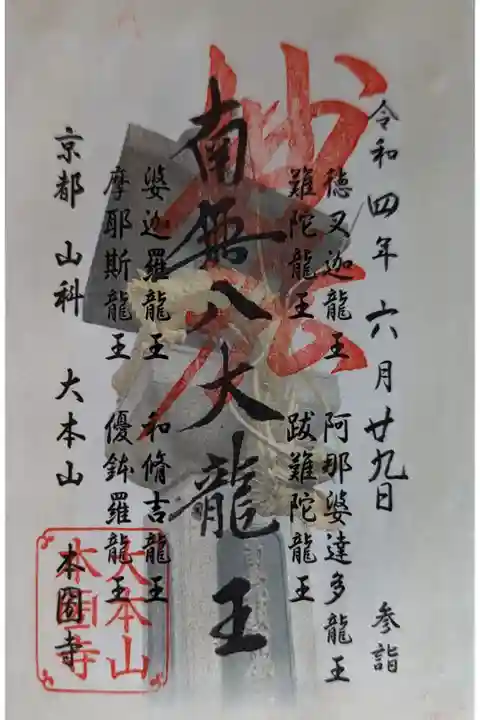 令和四年六月廿九日 参詣
徳叉迦龍王 阿那婆達多龍王
難陀龍王 跋難陀龍王
南無八大龍王
妙法
婆迦羅龍王 和脩吉龍王
摩耶斯龍王 優鉢羅龍王
京都 山科 大本山 本圀寺
大本山
本圀寺